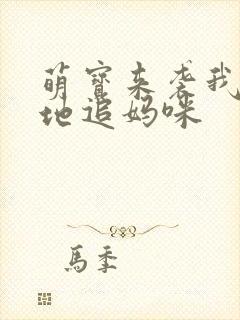 萌寶来袭我
地追妈咪
馬季